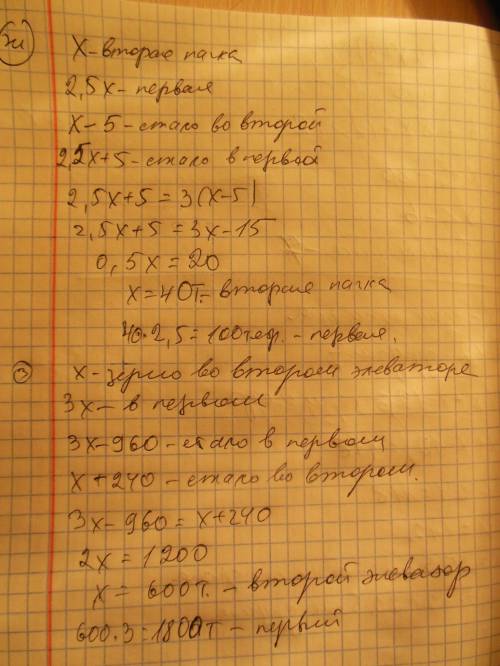 ж) х - вторая пачка
2,5х - первая
х - 5 - стало во второй
2,5х+5 - стало в первой
2,5х+5 = 3(х-5)
2,5х+5 = 3х-15
0,5х = 20
х = 40т. - вторая пачка
40·2,5 = 100тетр. - первая.
з) х - зерно во втором элеваторе
3х - в первом
3х-960 - стало в первом
х + 240 - стало во втором.
3х-960 = х+240
2х = 1200
х = 600т. - второй элеватор
600·3 = 1800т - первый